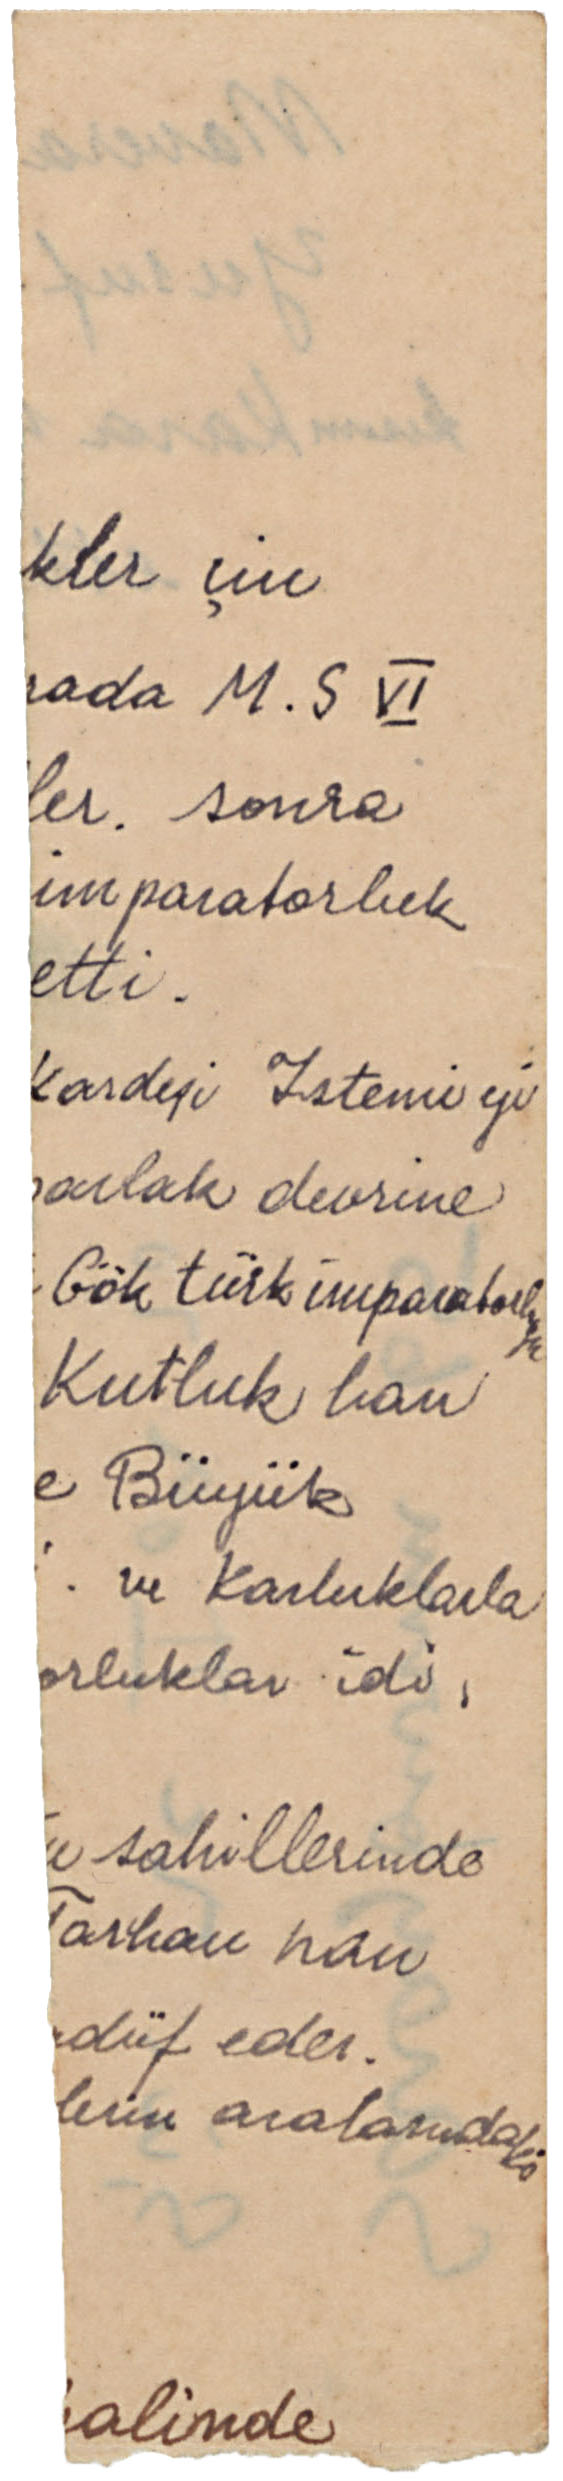 kler çin
rada M.S VI
ler. sonra
imparatorluk
etti.
kardeşi İstemi yi
parlak devrine
Gök türk imparatorluğu
Kutluk han
e Büyük
. ve Karluklarla
orluklar idi,
sahillerinde
Tarhan han
düf eder.
lerin aralarındaki
halinde